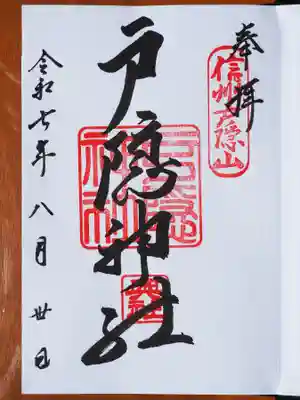 奉拝
信州戸隠山
戸隠神社
戸隠
神社
令和七年八月丗日